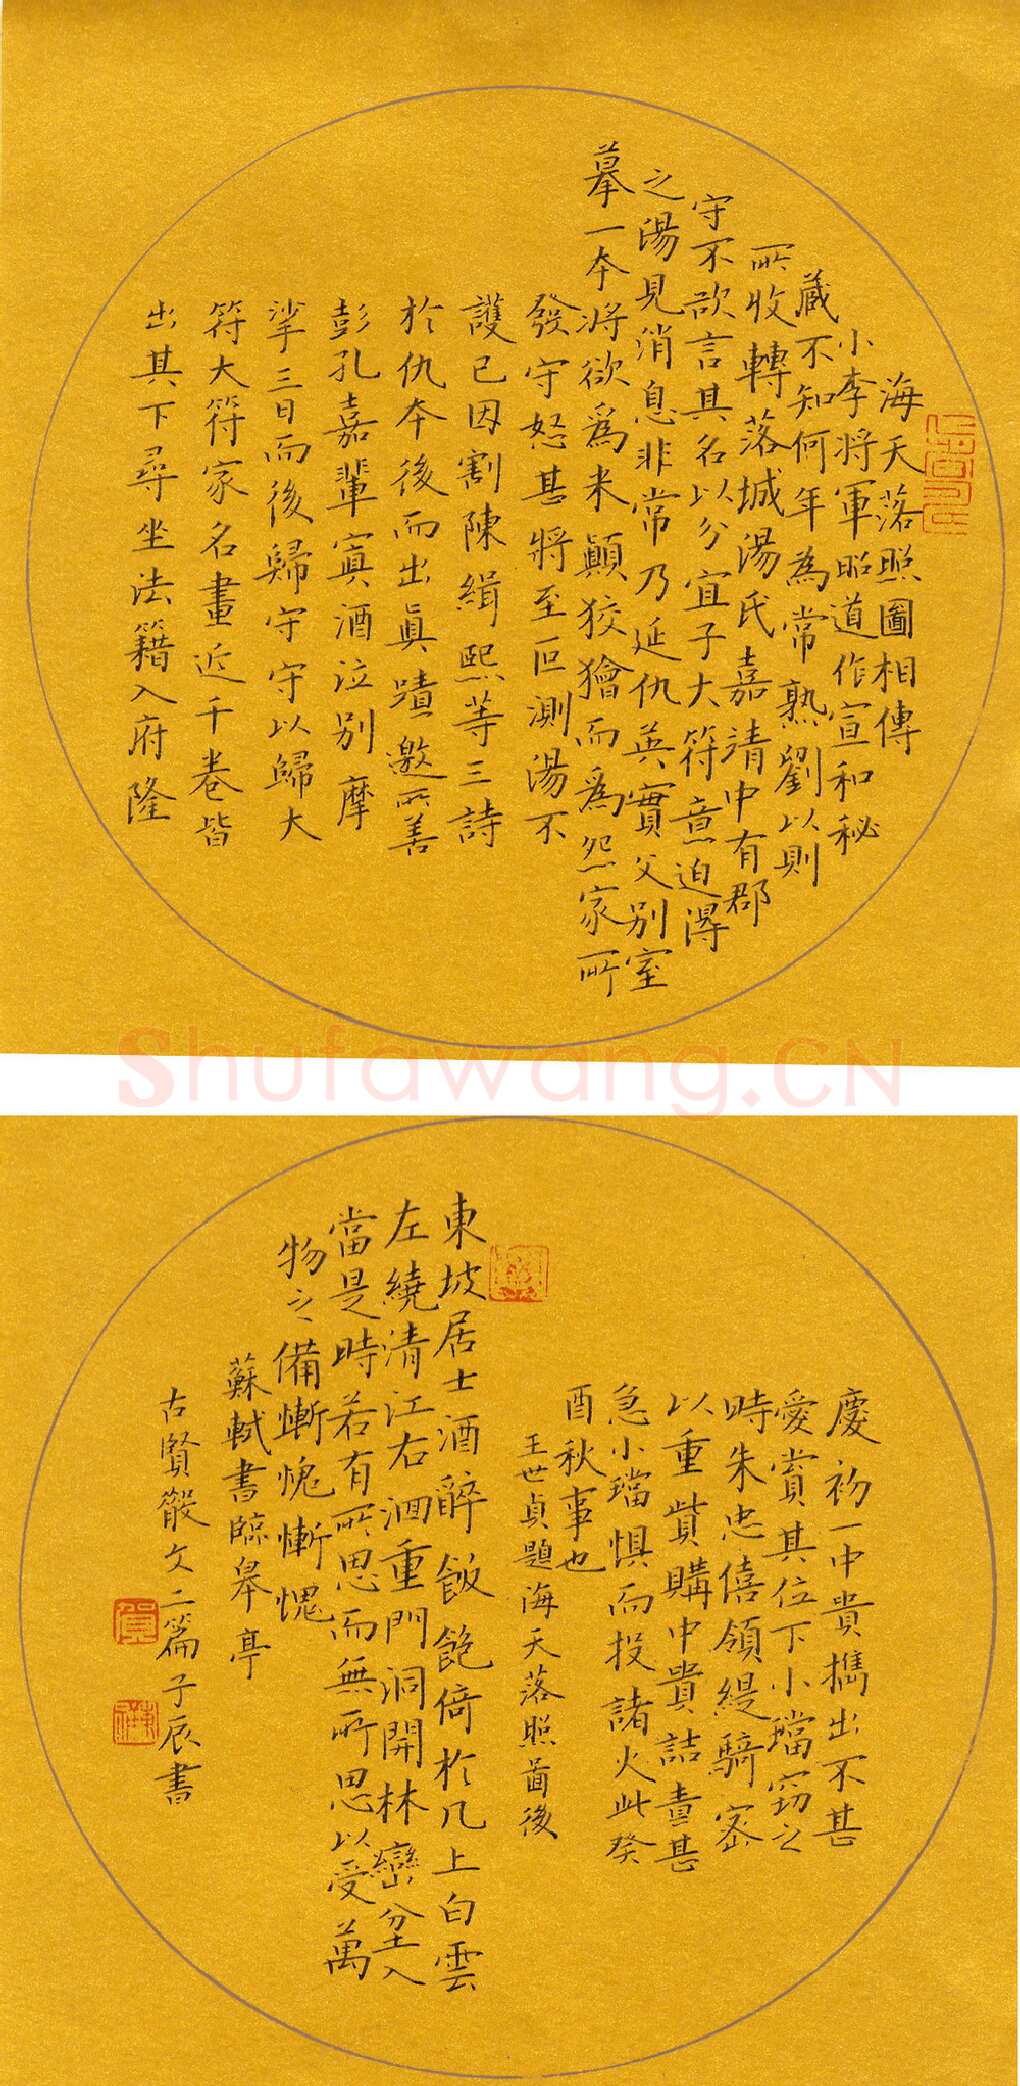 海天落照圖相傳
小李將軍昭道作宣和秘
藏不知何年為常熟劉以則
所收轉落城湯氏嘉靖中有郡
守不欲言其名以分宜子大符意迫得
之湯見消息非常乃延仇英實父別室
摹一本將欲為米顛狡獪而為怨家所
發守怒甚將至叵測湯不
護已因割陳緝熙等三詩
於仇本後而出真蹟邀所善
彭孔嘉輩寘酒泣別摩
挲三日而後歸守守以歸大
符大符家名畫近千卷皆
出其下尋坐法籍入府隆
Shufawang.CN
慶初一中貴攜出不甚
愛賞其位下小璫竊之
時朱忠僖領緹騎密
以重貲購中貴詰責甚
急小璫懼而投諸火此癸
酉秋事也
王世貞題海天落照圖後
東坡居士酒醉飯飽倚於几上白雲
左繞清江右洄重門洞開林巒坌入
當是時若有所思而無所思以受萬
物之備慚愧慚愧
蘇軾書臨皋亭
古賢散文二篇子辰書